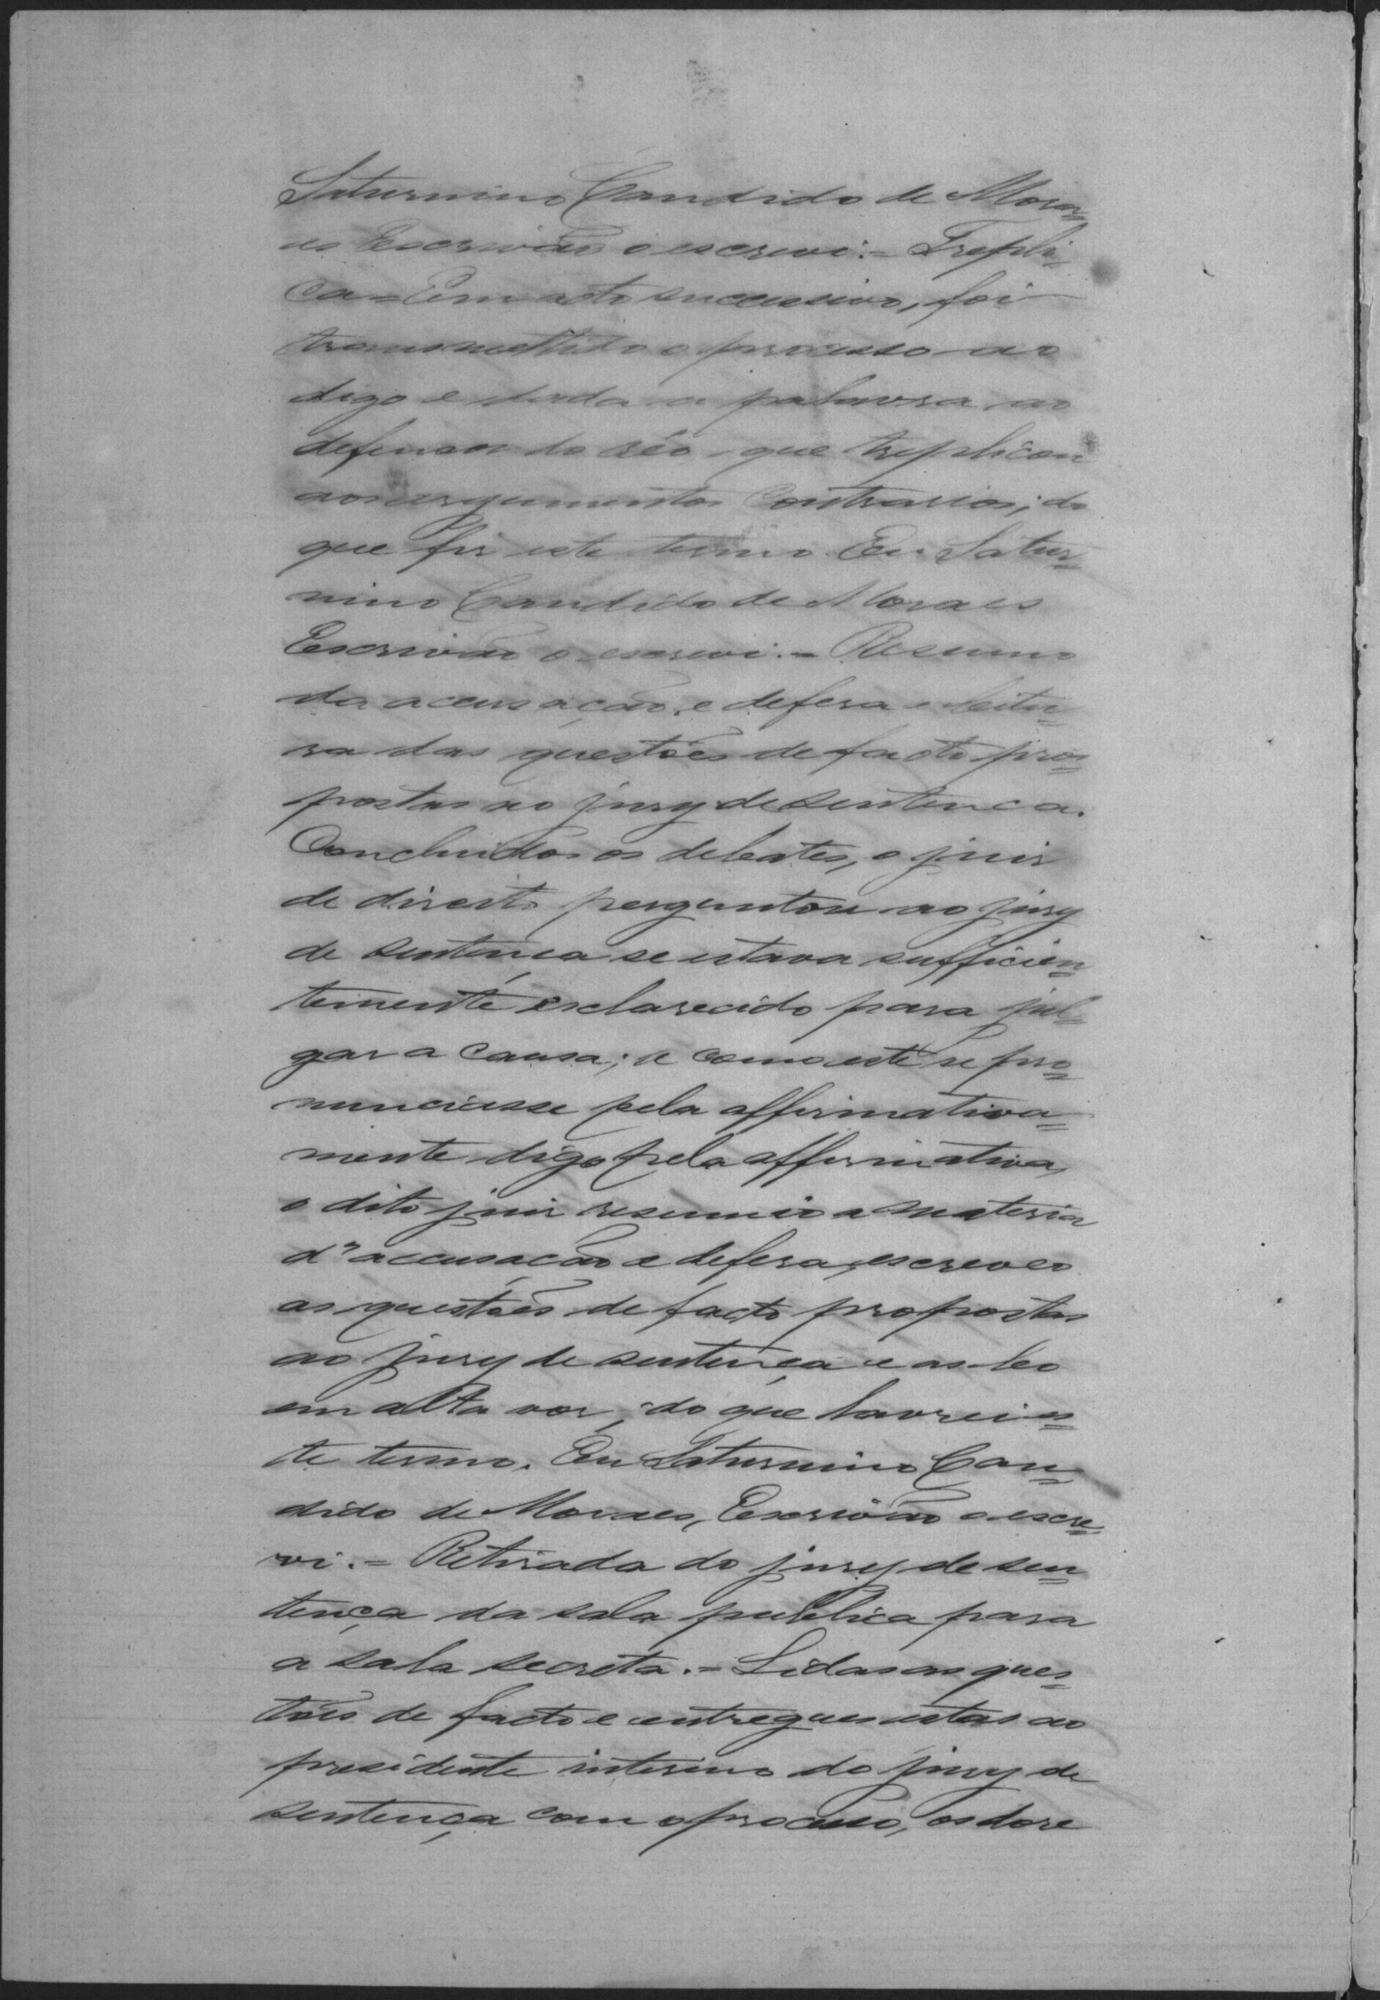 Saturnino Candido de Mora=
es Escrivão o escrevi.= Trepli=
ca= Em acto successivo, foi
transmettido o processo ao
digo e dada a palavra ao
defensor do réo, que treplicou
aos argumentos contrarios; do
que fiz este termo. Eu Satur=
nino Candido de Moraes
Escrivão o escrevi.= Resumo
da accusação, e defesa e leitu=
ra das questões de facto pro=
postas ao jury de sentença.
Concluidos os debates, o juis
de direito perguntou ao jury
de sentença se estava sufficien=
temente esclarecido para jul=
gar a causa; e como este se pro=
nunciasse pela affirmativa=
mente digo pela affirmativa,
o dito juis resumio a materia
d'accusação e defesa, escreveo
as questões de facto propostas
ao jury de sentença e as leo
em alta vos; do que lavrei es=
te termo. Eu Saturnino Can=
dido de Moraes, Escrivão o escre=
vi.= Retirada do jury de sen=
tença da sala publica para
a sala secreta.= Lidas as ques=
tões de facto e entregues estas ao
presidente interino do jury de
sentença com o processo, os dose